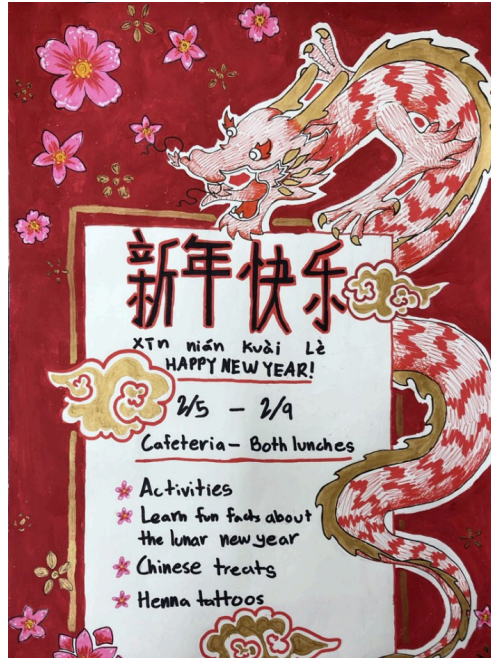 新年快乐
Xīn nián Kuài Lè
HAPPY NEW YEAR!
2/5 – 2/9
Cafeteria – Both lunches
Activities
Learn fun facts about
the lunar new year
Chinese treats
Henna tattoos